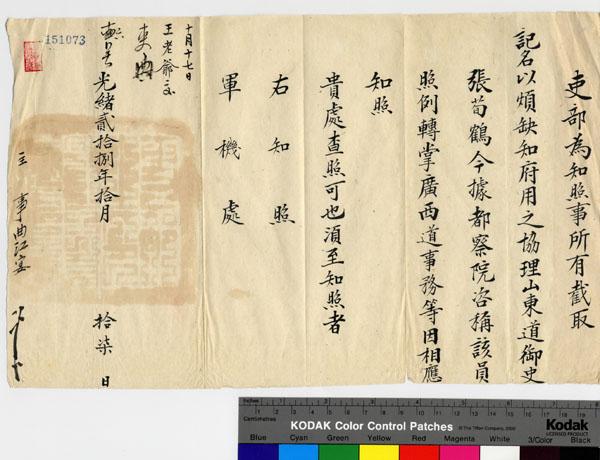 吏部為知照事所有截取
記名以煩缺知府用之協理山東道御史
張荀鶴今據都察院咨稱該員
照例轉掌廣西道事務等因相應
知照
貴處查照可也須至知照者
右知照
軍機處
十月十七日
王老爺交
光緒貳拾捌年拾月 拾柒 日
主事曲江宴
151073
Inches
Centimetres
KODAK Color Control Patches
© The Tiffen Company, 2000
Kodak
LICENSED PRODUCT
Blue Cyan Green Yellow Red Magenta White 3/Color Black